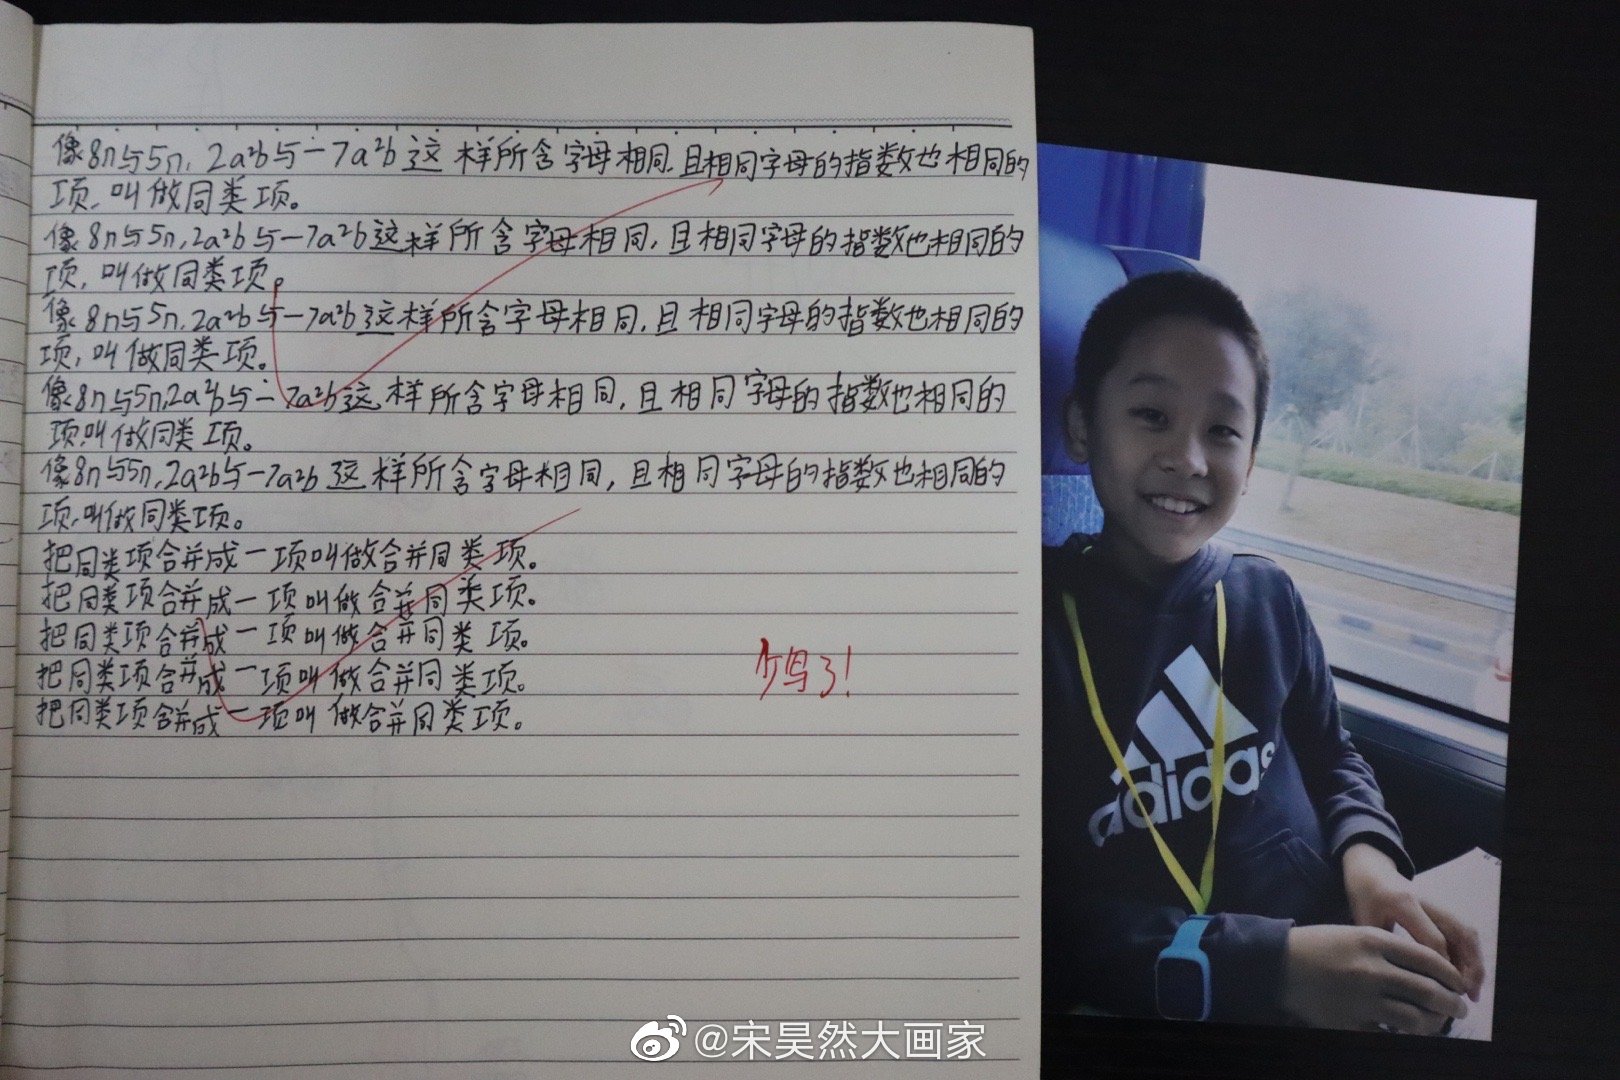 像8n与5n,2a²b与-7a²b这样所含字母相同,且相同字母的指数也相同的
项,叫做同类项。
像8n与5n,2a²b与-7a²b这样所含字母相同,且相同字母的指数也相同的
项,叫做同类项。
像8n与5n,2a²b与-7a²b这样所含字母相同,且相同字母的指数也相同的
项,叫做同类项。
像8n与5n,2a²b与-7a²b这样所含字母相同,且相同字母的指数也相同的
项,叫做同类项。
像8n与5n,2a²b与-7a²b这样所含字母相同,且相同字母的指数也相同的
项,叫做同类项。
把同类项合并成一项叫做合并同类项。
把同类项合并成一项叫做合并同类项。
把同类项合并成一项叫做合并同类项。
把同类项合并成一项叫做合并同类项。
把同类项合并成一项叫做合并同类项。
少写了!
adidas
@宋昊然大画家